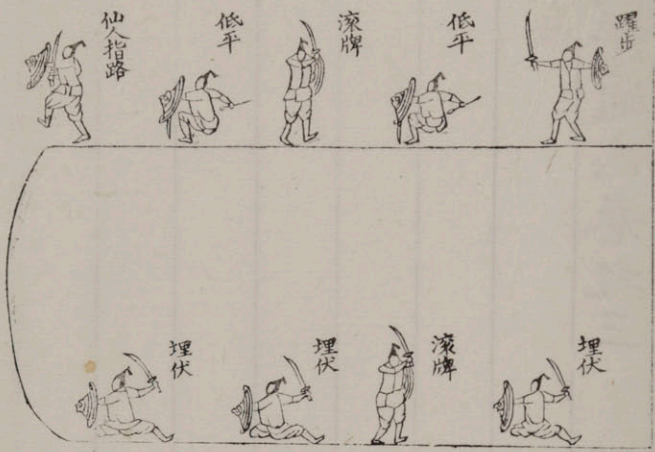 躍步
低平
滚牌
低平
仙人指路
埋伏
滚牌
埋伏
埋伏